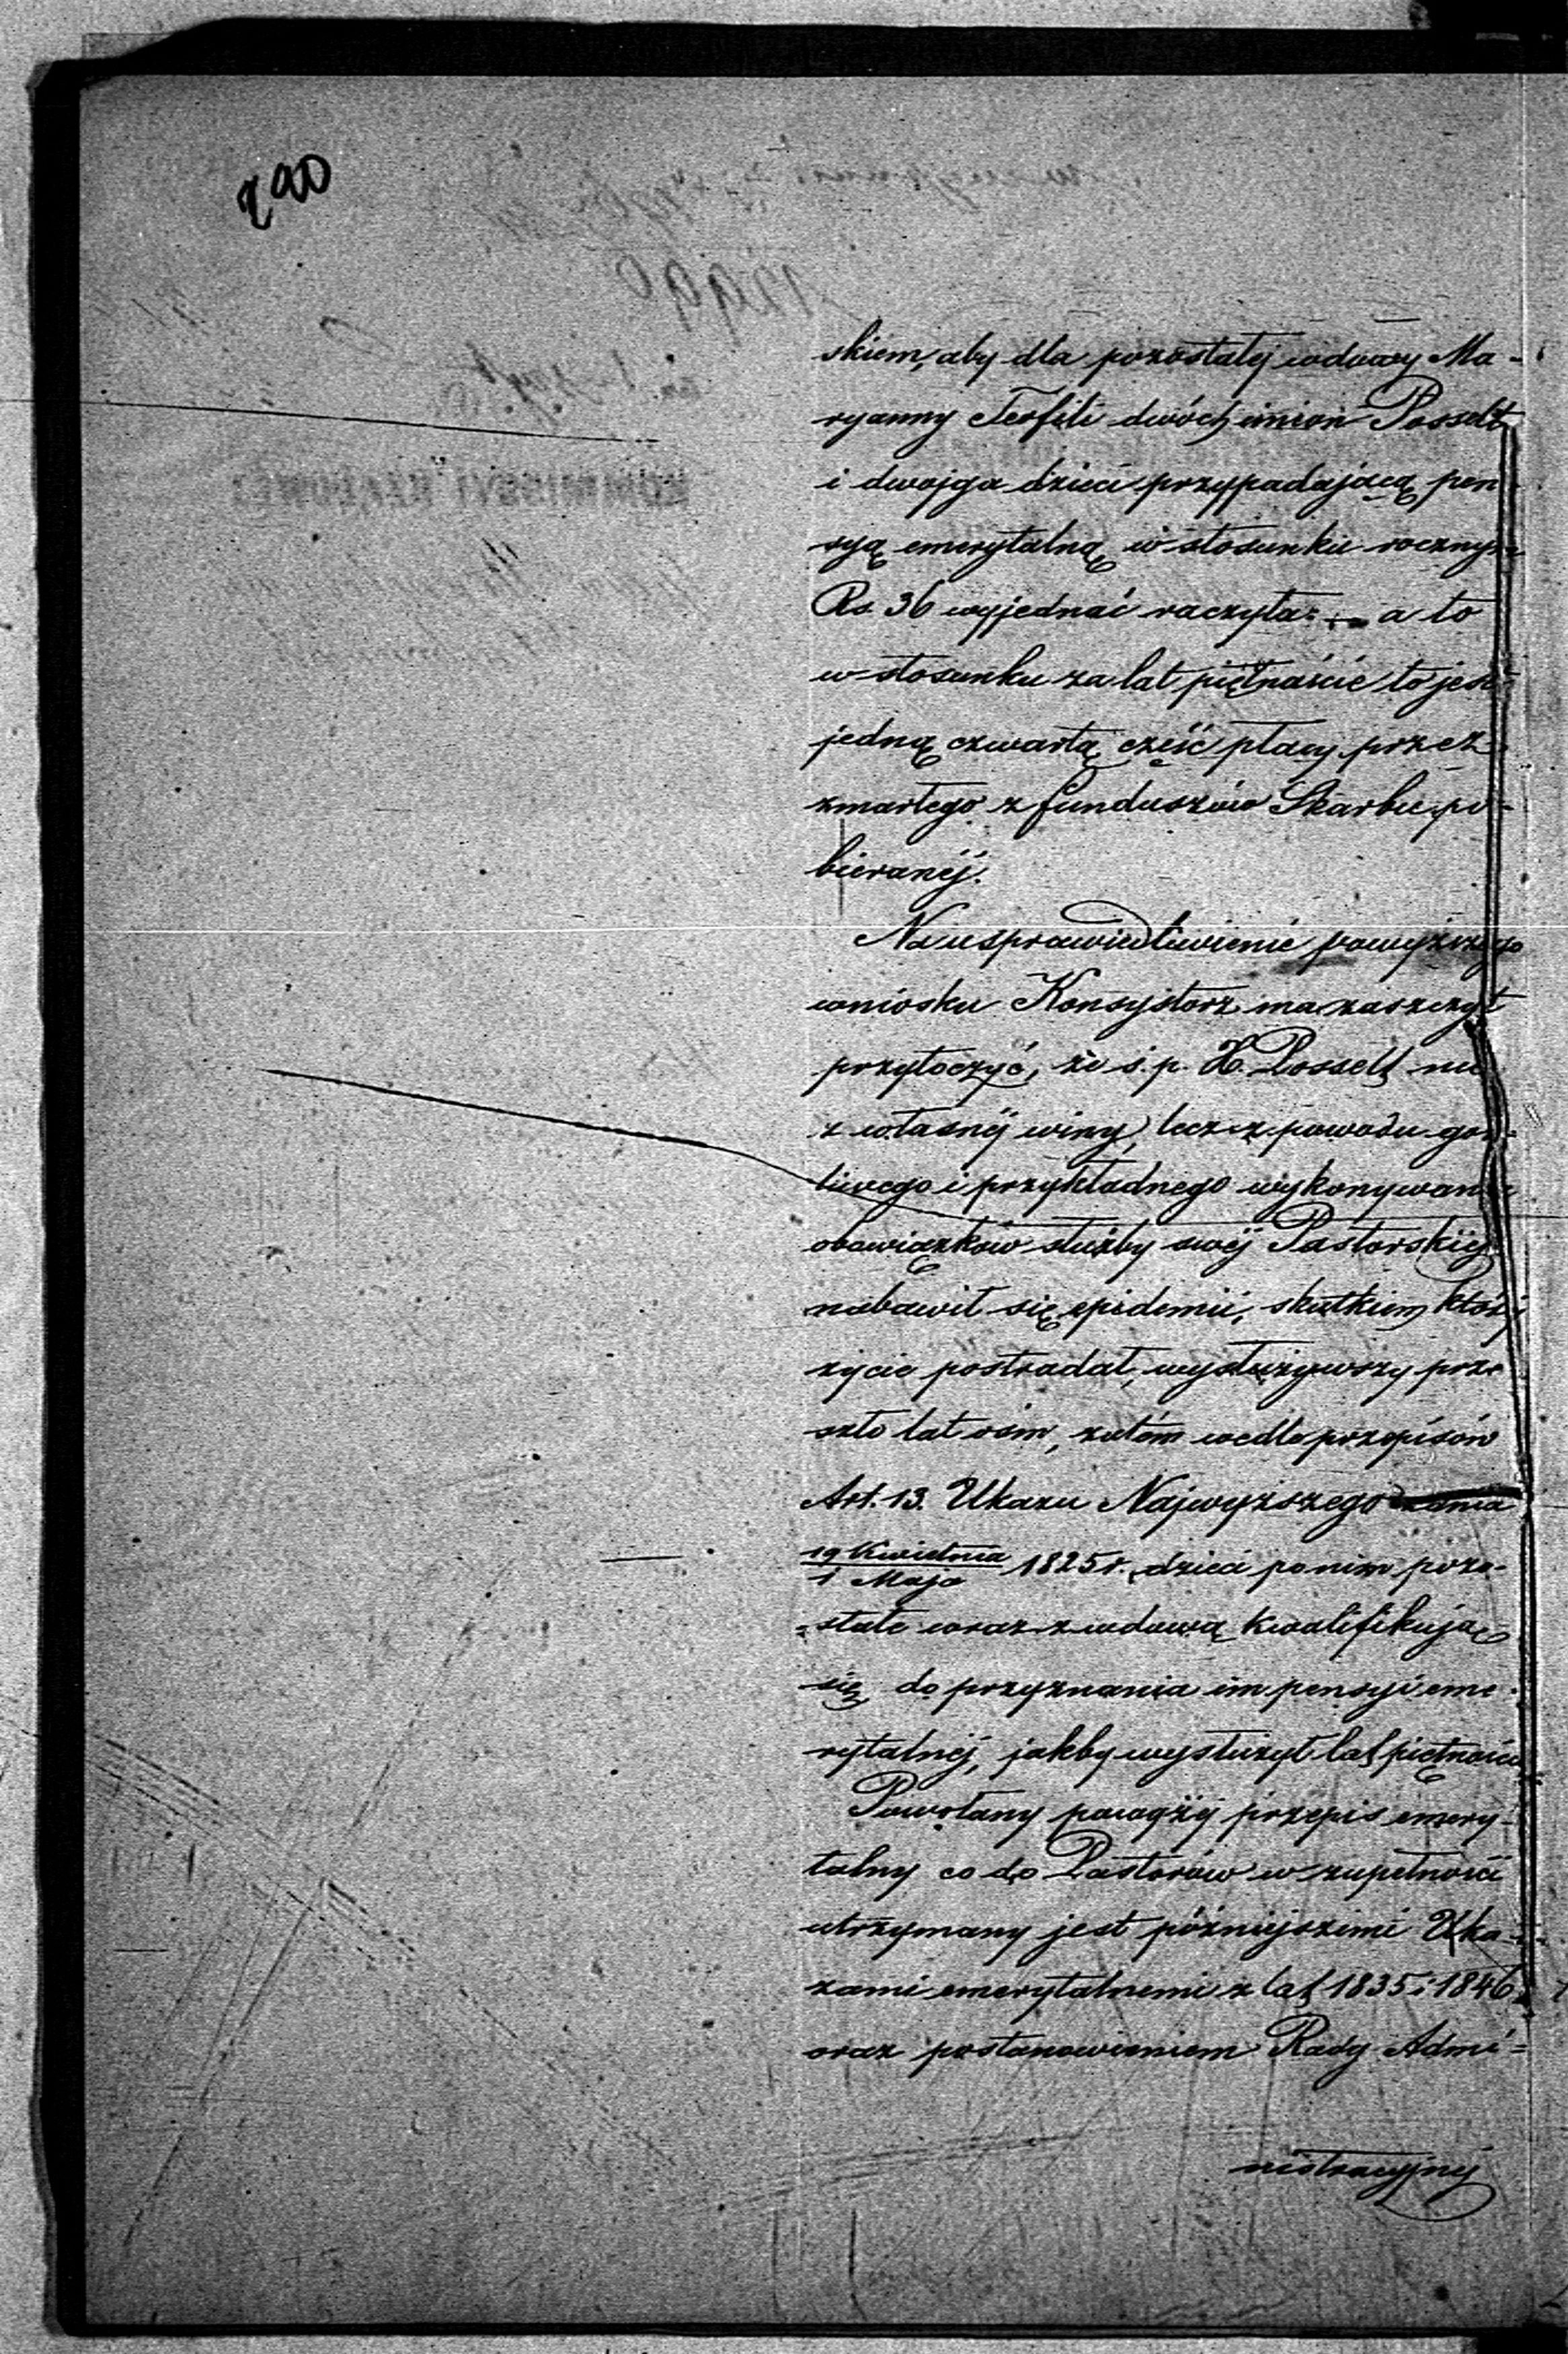 290
skiem, aby dla pozostałej wdowy Ma-
ryanny Teofili dwóch imion Posselt
i dwojga dzieci przypadającą pen-
syą emerytalną w stosunku rocznym
Rs. 36 wyjednać raczyła: — a to
w stosunku za lat piętnaście to jest
jedną czwartą część płacy przez
zmarłego z funduszów Skarbu po-
bieranéj.
Na usprawiedliwienie powyższego
wniosku Konsystorz ma zaszczyt
przytoczyć, że ś. p. H. Posselt nie
z własnéj winy, lecz z powodu gor-
liwego i przykładnego wykonywania
obowiązków służby swéj Pastorskiéj
nabawił się epidemii, skutkiem któréj
życie postradał, wysłużywszy prze
szło lat ośm, zatém wedle przepisów
Art. 13. Ukazu Najwyższego z dnia
19 Kwietnia / 1 Maja 1825 r. dzieci po nim pozo-
=stałe wraz z wdową kwalifikują
się do przyznania im pensyi eme-
rytalnéj, jakby wysłużył lat piętnaście
Powołany powyżéj przepis emery-
talny co do Pastorów w zupełności
utrzymany jest późniejszemi Uka-
zami emerytalnemi z lat 1835 i 1846
oraz postanowieniem Rady Admi=
nistracyjnéj